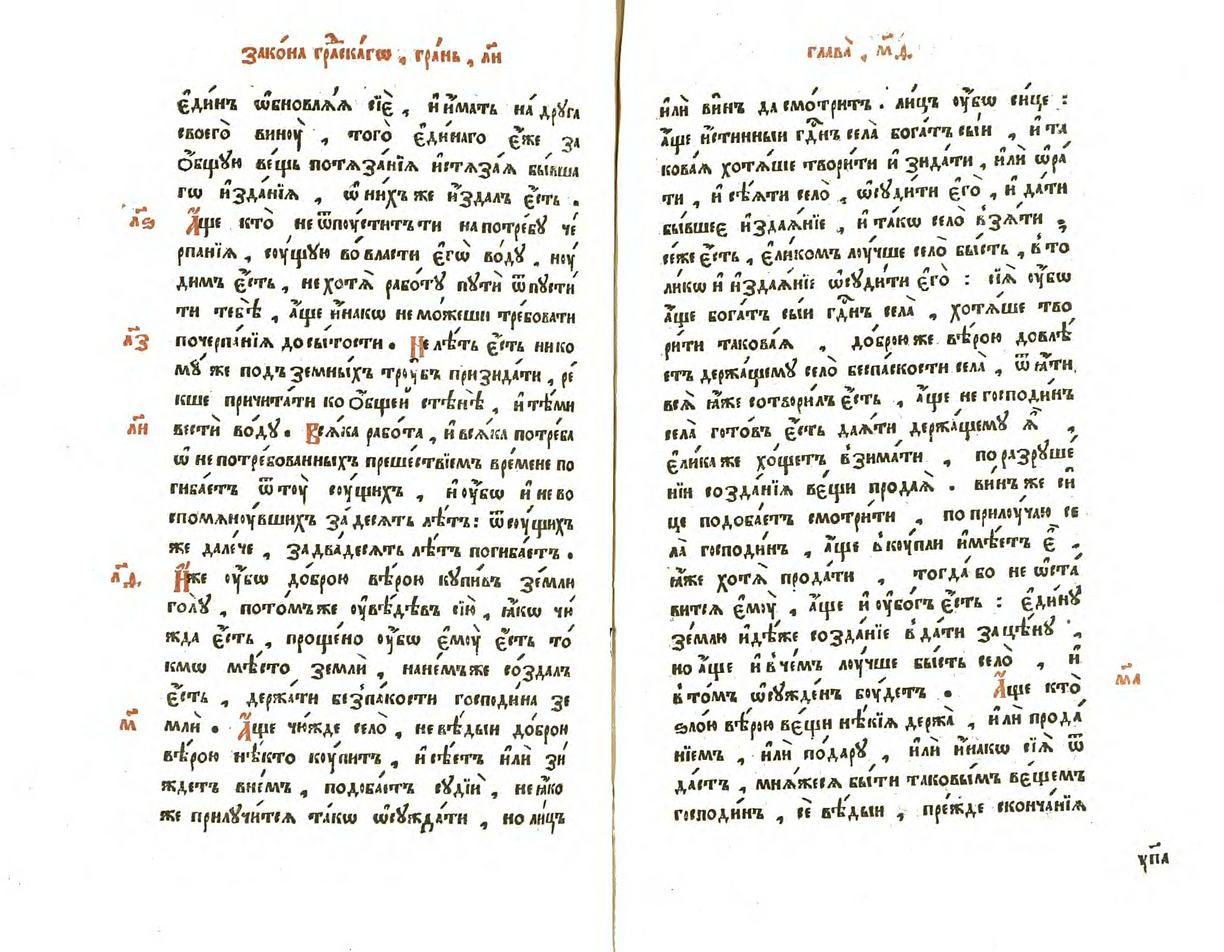 Зако́на гра́дскагѡ, гра́нь, л҃и
є҆ди́нъ ѡ҆бновлѧ́ѧ сїѐ, и҆ и҆́мать на дрꙋ́га
своегѡ̀ винꙋ̀, того̀ є҆ди́наго є҆́же за
о҆́бщꙋю ве́щь потѧза́нїѧ и҆стѧза́ѧ бы́вша
гѡ и҆зда́нїѧ, ѡ҆ ни́хъ же и҆зда́лъ є҆́сть.
л҃ѕ А҆́ще кто̀ не ѿпꙋ́ститъ ти на потре́бꙋ че́
рпанїѧ, сꙋ́щꙋю во вла́сти є҆гѡ̀ во́дꙋ, нꙋ́
димъ є҆́сть, не хотѧ̀ рабо́тꙋ пꙋтѝ ѿпꙋсти́
ти тебѣ̀, а҆́ще и҆́накѡ не мо́жеши тре́бовати
л҃з почерпа́нїѧ до сы́тости. Не лѣ́ть є҆́сть нико
мꙋ́ же подъ зе́мныхъ трꙋ́бъ призида́ти, ре́
кше причита́ти ко о҆́бщей стѣнѣ̀, и҆ тѣ́ми
л҃и вестѝ во́дꙋ. Всѧ́ка рабо́та, и҆ всѧ́ка потре́ба
ѡ҆ не потре́бованныхъ преше́ствїемъ вре́мене по
гиба́етъ ѿ тꙋ̀ сꙋ́щихъ, и҆ ᲂу҆́бѡ и҆ не во
спомѧнꙋ́вшихъ за де́сѧть лѣ́тъ: ѿсꙋ́щихъ
же дале́че, за два́десѧть лѣ́тъ погиба́етъ.
л҃ѳ И҆́же ᲂу҆́бѡ до́брою вѣ́рою кꙋпи́въ зе́мли
го́лꙋ, пото́мъ же ᲂу҆вѣ́дѣвъ сїю̀, ꙗ҆́кѡ чю́
жда є҆́сть, проще́но ᲂу҆́бѡ є҆мꙋ̀ є҆́сть то́
кмѡ мѣ́сто землѝ, на не́мъ же со́здалъ
є҆́сть, держа́ти без̾ па́кости господи́на зе
м҃ млѝ. А҆́ще чю́жде село̀, не вѣ́дыи до́брою
вѣ́рою нѣ́кто кꙋ́питъ, и҆ сѣ́етъ и҆лѝ зи́
ждетъ в не́мъ, подоба́етъ сꙋдїѝ, не ꙗ҆́ко
же прилꙋчи́тсѧ та́кѡ ѡ҆сꙋжда́ти, но ли́цъ
глава̀, м҃д.
и҆лѝ ви́нъ да смо́тритъ. ли́цъ ᲂу҆́бѡ си́це:
а҆́ще и҆́стинныи гдⷭ҇нъ села̀ бога́тъ сы́и, и҆ та
кова́ѧ хотѧ́ше твори́ти и҆ зида́ти, и҆лѝ ѡ҆ра́
ти, и҆ сѣ́ѧти село̀, ѡ҆сꙋди́ти є҆го̀, и҆ да́ти
бы́вшеє и҆здаѧ́нїе, и҆ та́кѡ село̀ взѧ́ти;
се́ же є҆́сть, є҆ли́комъ лꙋ́чше село̀ бы́сть, в то
ли́кѡ и҆ и҆здаѧ́нїе ѡ҆сꙋди́ти є҆го̀: сїѧ̀ ᲂу҆́бѡ
а҆́ще бога́тъ сы́и гдⷭ҇нъ села̀, хотѧ́ше тво
ри́ти такова́ѧ, до́брою же вѣ́рою довлѣ́
етъ держа́щемꙋ село̀ бе спа́кости села̀, ѿꙗ҆́ти
всѧ̀ ꙗ҆̀же сотвори́лъ є҆́сть, а҆́ще не господи́нъ
села̀ гото́въ є҆́сть даѧ́ти держа́щемꙋ ѧ҆̀,
є҆ли́ка же хо́щетъ взима́ти, по разрꙋше́
нїи созда́нїѧ ве́щи прода́ѧ. ви́нъ же си́
це подоба́етъ смотри́ти, по прилꙋ́чаю се
ла̀ господи́нъ, а҆́ще в кꙋ́пли и҆мѣ́етъ є҆̀,
ꙗ҆́же хотѧ̀ прода́ти, тогда́ бо не ѡ҆ста́
витсѧ є҆мꙋ̀, а҆́ще и҆ ᲂу҆бо́гъ є҆́сть: є҆ди́нꙋ
зе́млю и҆дѣ́же созда́нїе вда́ти за цѣ́нꙋ,
но а҆́ще и҆ в че́мъ лꙋ́чше бы́сть село̀, и҆
в то́мъ ѡ҆сꙋжде́нъ бꙋ́детъ. А҆́ще кто̀ м҃а
ѕло́ю вѣ́рою ве́щи нѣ́кїѧ держа̀, и҆лѝ прода́
нїемъ, и҆лѝ по да́рꙋ, и҆лѝ и҆́накѡ сїѧ̀ ѿ
да́стъ, мнѧ́жесѧ бы́ти таковы́мъ ве́щемъ
господи́нъ, сѐ вѣ́дыи, пре́жде сконча́нїѧ
ꙋ҃па